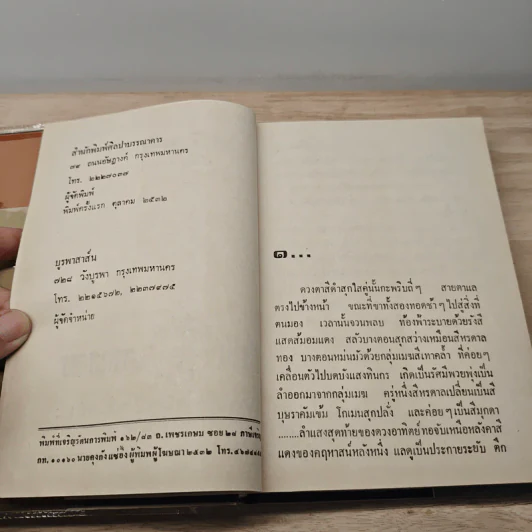 สำนักพิมพ์ศิลปาบรรณาคาร
๓๑ ถนนอัษฎางค์ กรุงเทพมหานคร
โทร. ๒๒๒๗๐๓๗
ผู้จัดพิมพ์
พิมพ์ครั้งแรก ตุลาคม ๒๕๓๒
บูรพาสาส์น
๗๒๘ วังบูรพา กรุงเทพมหานคร
โทร. ๒๒๑๕๖๗๒, ๒๒๓๗๙๗๕
ผู้จัดจำหน่าย
พิมพ์ที่เจริญรัตนการพิมพ์ ๑๖๒/๘๓ ถ. เพชรเกษม ซอย ๒๘
กท. ๑๐๑๖๐ ผู้พิมพ์ผู้โฆษณา ๒๕๓๒ โทร.
๑...
ดวงตาสีดำสุกใสคู่นั้นกะพริบถี่ๆ สายตาแล
ตรงไปข้างหน้า ขณะที่ขาทั้งสองทอดช้าๆ ไปสู่สิ่งที่
ตนมอง เวลานั้นจวนพลบ ท้องฟ้าระบายด้วยรังสี
แสดส้มอมแดง สลัวบางตอนสุกสว่างเหมือนสีหรดาล
ทอง บางตอนหม่นมัวด้วยกลุ่มเมฆสีเทาคล้ำ ที่ค่อยๆ
เคลื่อนตัวไปบดบังแสงทินกร เกิดเป็นรัศมีพวยพุ่งเป็น
ลำออกมาจากกลุ่มเมฆ ครู่หนึ่งสีหรดาลเปลี่ยนเป็นสี
บุษราคัมเข้ม โกเมนสุกปลั่ง และค่อยๆ เป็นสีมุกดา
........ลำแสงสุดท้ายของดวงอาทิตย์ทอจับเหนือหลังคาสี
แดงของคฤหาสน์หลังหนึ่ง แลดูเป็นประกายระยับ ตึก